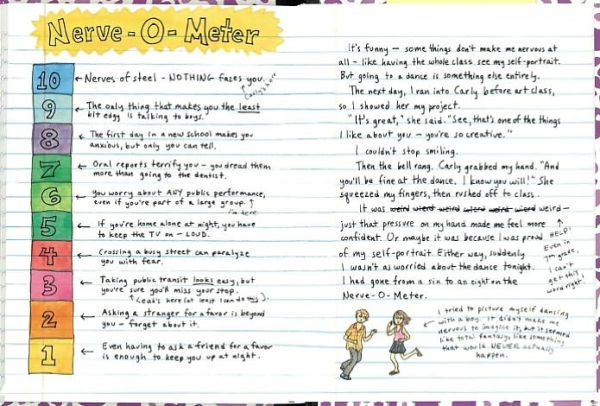 Nerve-O-Meter
10 Nerves of steel - NOTHING fazes you.
Carly's here
9 The only thing that makes you the least
bit edgy is talking to boys.
8 The first day in a new school makes you
anxious, but only you can tell.
7 Oral reports terrify you - you dread them
more than going to the dentist.
6 You worry about ANY public performance,
even if you're part of a large group.
I'm here
5 If you're home alone at night, you have
to keep the TV on - LOUD.
4 Crossing a busy street can paralyze
you with fear.
3 Taking public transit looks easy, but
you're sure you'll miss your stop.
Leah's here (at least I can do this)
2 Asking a stranger for a favor is beyond
you - forget about it.
1 Even having to ask a friend for a favor
is enough to keep you up at night.
It's funny - some things don't make me nervous at
all - like having the whole class see my self-portrait.
But going to a dance is something else entirely.
The next day, I ran into Carly before art class,
so I showed her my project.
"It's great," she said. "See, that's one of the things
I like about you - you're so creative."
I couldn't stop smiling.
Then the bell rang. Carly grabbed my hand. "And
you'll be fine at the dance. I know you will!" She
squeezed my fingers, then rushed off to class.
It was weird wierd weird wierd weird wierd weird -
just that pressure on my hand made me feel more
confident. Or maybe it was because I was proud
of my self-portrait. Either way, suddenly
I wasn't as worried about the dance tonight.
I had gone from a six to an eight on the
Nerve-O-Meter.
HELP!
Even in
7th grade,
I can't
get this
word right.
I tried to picture myself dancing
with a boy. it didn't make me
nervous to imagine it, but it seemed
like total fantasy, like something
that would NEVER actually
happen.